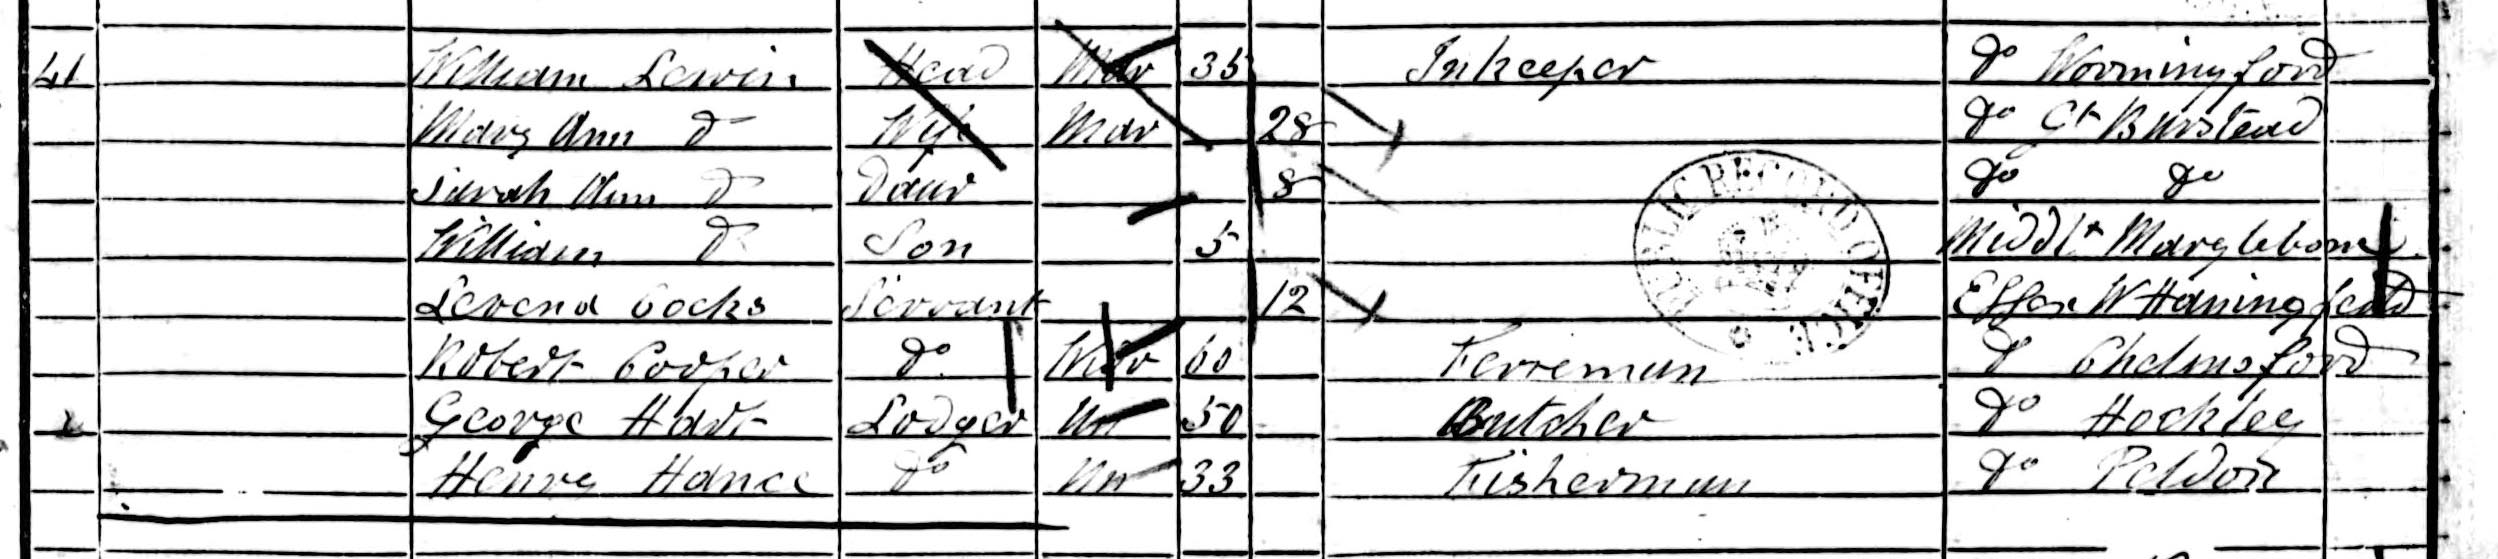 41 William Lewin Head Mar 35 Inkeeper Do Wormingford
Mary Ann Do Wife Mar 28 Do Gt Burstead
Sarah Ann Do Daur 8 Do Do
William Do Son 5 Middlx Marylebone
Servant 12 Essex W Haningfeild
Robert Cooper Do Widr 60 Ferreman Do Chelmsford
George Hart Lodger Un 50 Butcher Do Hockley
Henry Hance Do Un 33 Fisherman Do Peldon